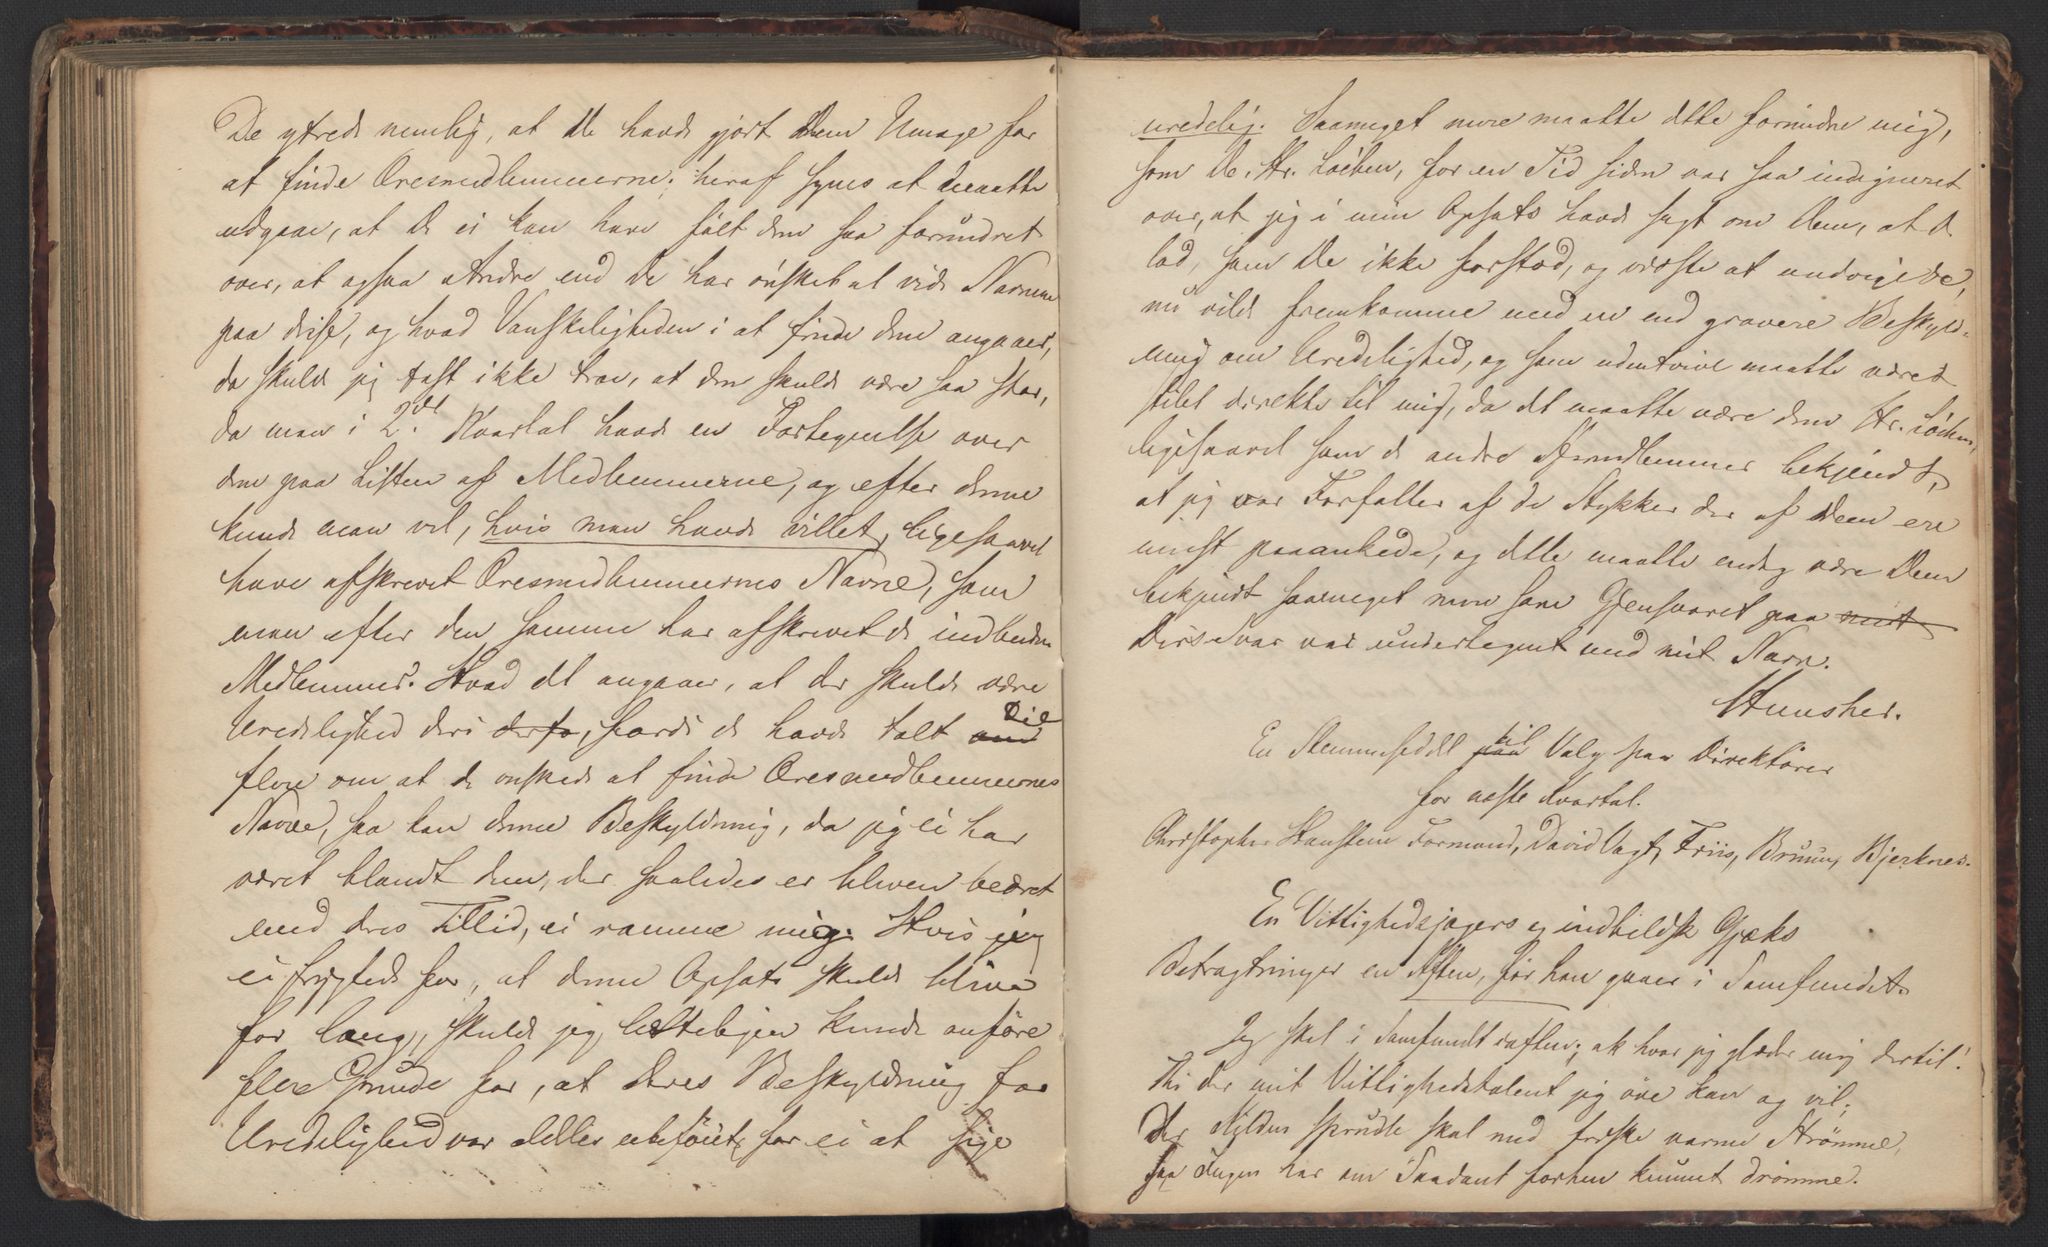 De yttrede nemlig, at De havde gjort Dem Umage for
at finde Æresmedlemmerne; heraf synes at maatte
udgaae, at De ei kan have fölt Dem saa forundret
over, at ogsaa Andre end De har önsket at vide Navnene
paa disse, og hvad Vanskeligheden i at finde dem angaaer,
da skulde jeg fast ikke troe, at den skulde være saa stor,
da man i 2det Kvartal havde en Fortegnelse over
dem paa Listen af Medlemmerne, og efter denne
kunde man vel, hvis man havde villet, ligesaavel
have afskrevet Æresmedlemmernes Navne, som
man efter den samme har afskrevet de indbudne
Medlemmer. Hvad det angaaer, at der skulde være
Uredelighed deri, fordi de havde talt til
flere om at de önskede at finde Æresmedlemmernes
Navne, saa kan denne Beskyldning, da jeg ei har
været blandt dem, der saaledes er bleven beæret
med deres Tillid, ei ramme mig. Hvis jeg
ei frygtede for, at denne Opsats skulde blive
for lang, skulde jeg letteligen kunde anföre
flere Grunde for, at Deres Beskyldning for
Uredelighed var aldeles ubeföiet, for ei at sige
uredelig. Saameget mere maatte dette forundre mig,
som De, Hr. Löchen, for en Tid siden var saa indigneret
over, at jeg i min Opsats havde sagt om Dem, at De
lod, som De ikke forstod, og vidste at undvige De,
nu vilde fremkomme med en end grovere Beskyld-
ning om Uredelighed, og som udentvivl maatte været
stilet direkte til mig, da det maatte være dem Hr. Löchen,
ligesaavel som de andre Medlemmer bekjendt,
at jeg var Forfatter af de Stykker der af Dem ere
mest paaankede, og dette maatte endog være Dem
bekjendt saameget mere som Gjensvaret paa mit
Deres Svar var undertegnet med mit Navn.
En Stemmeseddel til Valg paa Direktörer
for næste Kvartal.
Christopher Hansteen Formand, David Vogt, Friis, Bruun, Bjerknes.
En Vittighedsjægers og indbildsk Gjæks
Betragtninger en Aften, för han gaaer i Samfundet.
Jeg skal i Samfundet iaften; ak hvor jeg glæder mig dertil!
Thi der mit Vittighedstalent jeg öve kan og vil;
Der Kilden sprudle skal med friske varme Strömme,
saa Ingen har om Saadant forhen kunnet drömme.